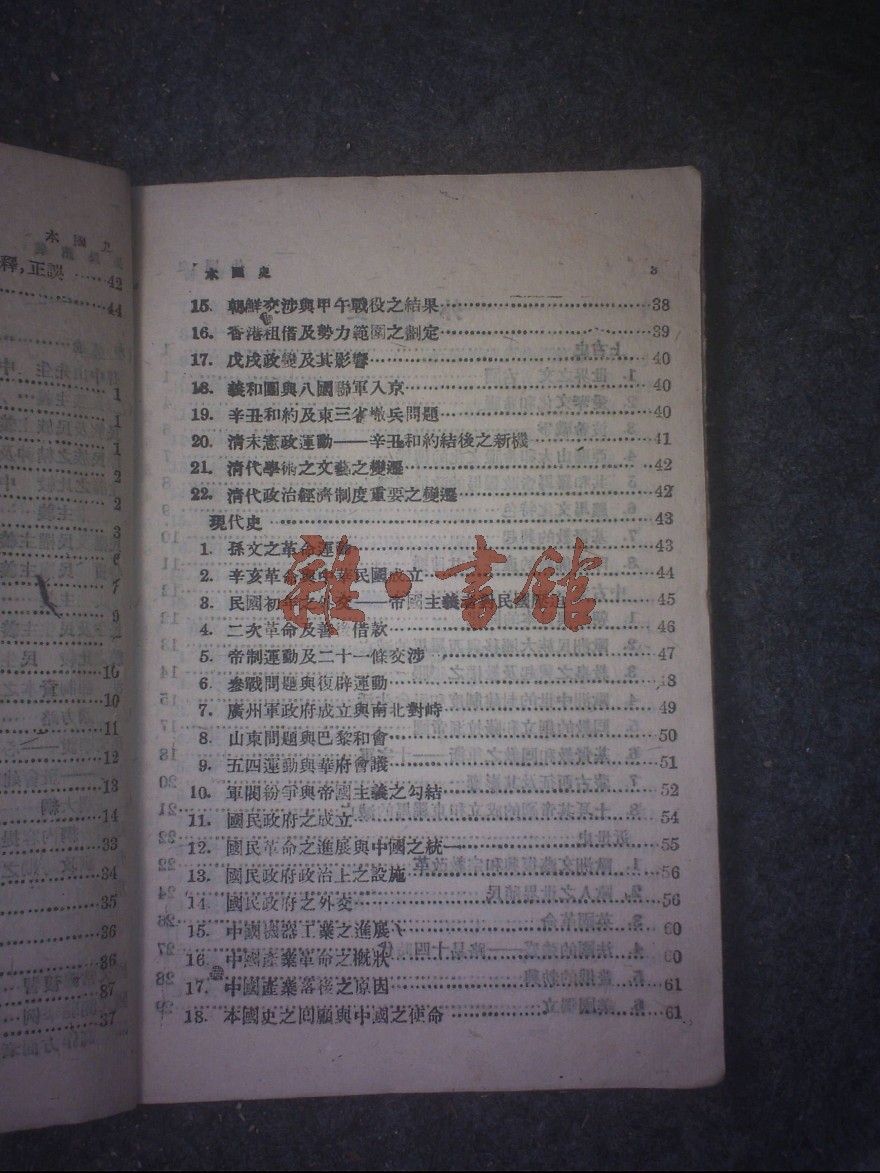 釋,正誤 ……42
……44
……1
……1
……1
……2
……2
……3
……6
……7
……9
……9
……10
……10
……11
……12
……13
……14
……33
……34
……35
……36
……37
……37
本國史 3
15. 朝鮮交涉與甲午戰役之結果……38
16. 香港租借及勢力範圍之劃定……39
17. 戊戌政變及其影響……40
18. 義和團與八國聯軍入京……40
19. 辛丑和約及東三省撤兵問題……40
20. 清末憲政運動——辛丑和約結後之新機……41
21. 清代學術之文藝之變遷……42
22. 清代政治經濟制度重要之變遷……42
現代史……43
1. 孫文之革命運動……43
2. 辛亥革命與中華民國成立……44
3. 民國初年之外交——帝國主義……民國……45
4. 二次革命及善後借款……46
5. 帝制運動及二十一條交涉……47
6. 叄戰問題與復辟運動……48
7. 廣州軍政府成立與南北對峙……49
8. 山東問題與巴黎和會……50
9. 五四運動與華府會議……51
10. 軍閥紛爭與帝國主義之勾結……52
11. 國民政府之成立……54
12. 國民革命之進展與中國之統一……55
13. 國民政府政治上之設施……56
14. 國民政府之外交……56
15. 中國機器工業之進展……60
16. 中國產業革命之概狀……60
17. 中國產業落後之原因……61
18. 本國史之回顧與中國之使命……61
雜·書館